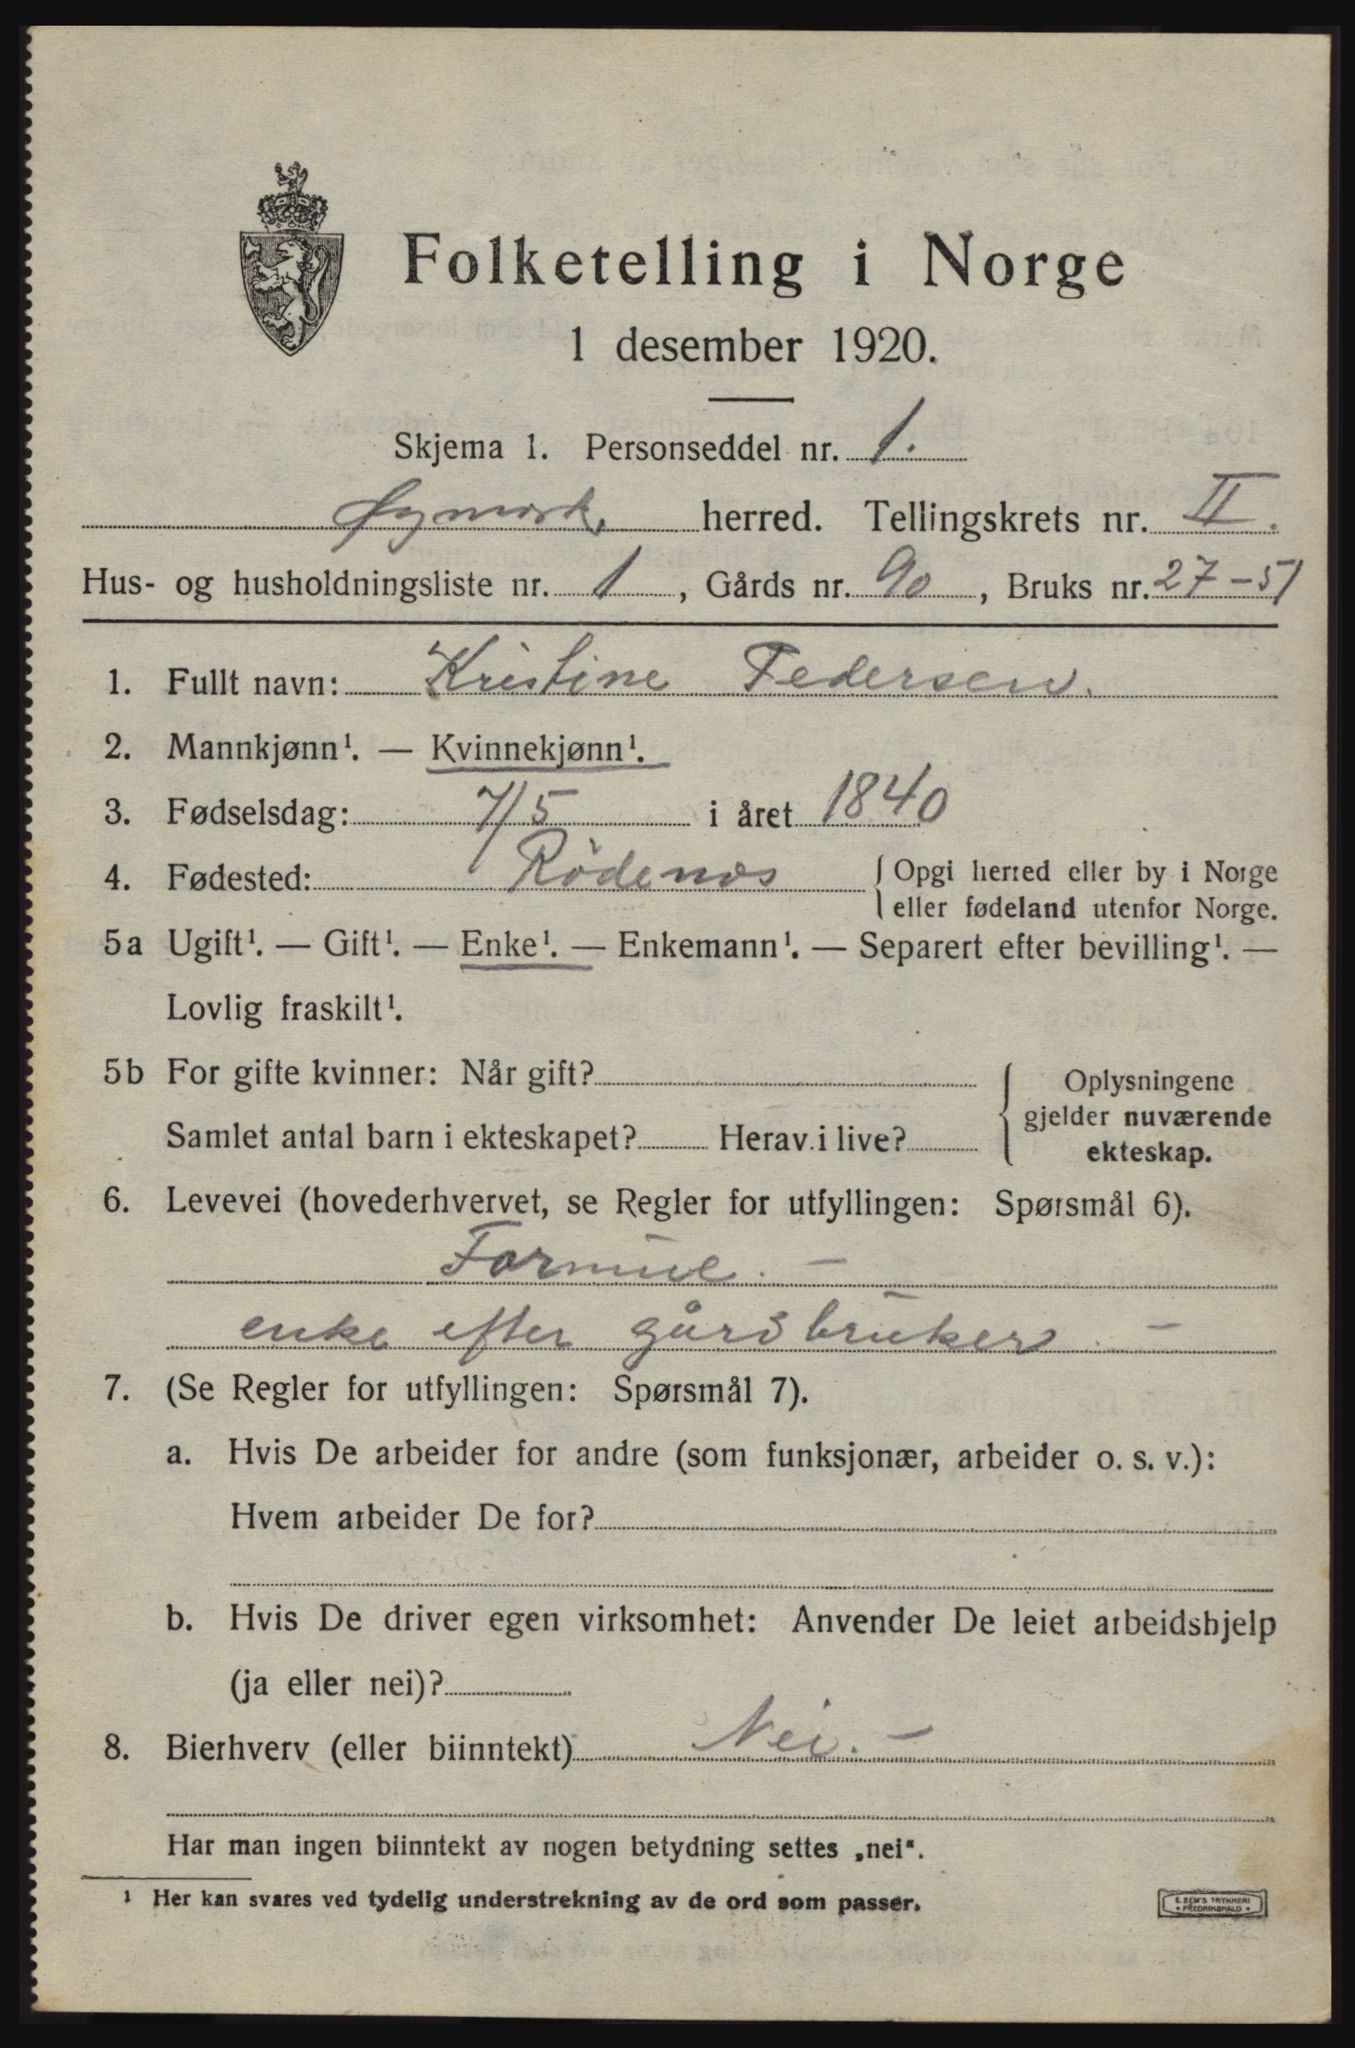 Folketelling i Norge
1 desember 1920.
Skjema 1. Personseddel nr. 1.
Øymark. herred. Tellingskrets nr. II.
Hus- og husholdningsliste nr. 1, Gårds nr. 90, Bruks nr. 27-51
1. Fullt navn: Kristine Pedersen.
2. Mannkjønn¹. — Kvinnekjønn¹.
3. Fødselsdag: 7/5 i året 1840
4. Fødested: Rødenes { Opgi herred eller by i Norge
eller fødeland utenfor Norge.
5a Ugift¹. — Gift¹. — Enke¹. — Enkemann¹. — Separert efter bevilling¹. —
Lovlig fraskilt¹.
5b For gifte kvinner: Når gift? { Oplysningene
gjelder nuværende
Samlet antal barn i ekteskapet? Herav i live? ekteskap.
6. Levevei (hovederhvervet, se Regler for utfyllingen: Spørsmål 6).
Formue. —
enke efter gårdbruker. —
7. (Se Regler for utfyllingen: Spørsmål 7).
a. Hvis De arbeider for andre (som funksjonær, arbeider o. s. v.):
Hvem arbeider De for?
b. Hvis De driver egen virksomhet: Anvender De leiet arbeidshjelp
(ja eller nei)?
8. Bierhverv (eller biinntekt) Nei. —
Har man ingen biinntekt av nogen betydning settes „nei“.
¹ Her kan svares ved tydelig understrekning av de ord som passer.
E. SEM'S TRYKKERI
• FREDRIKSHALD •